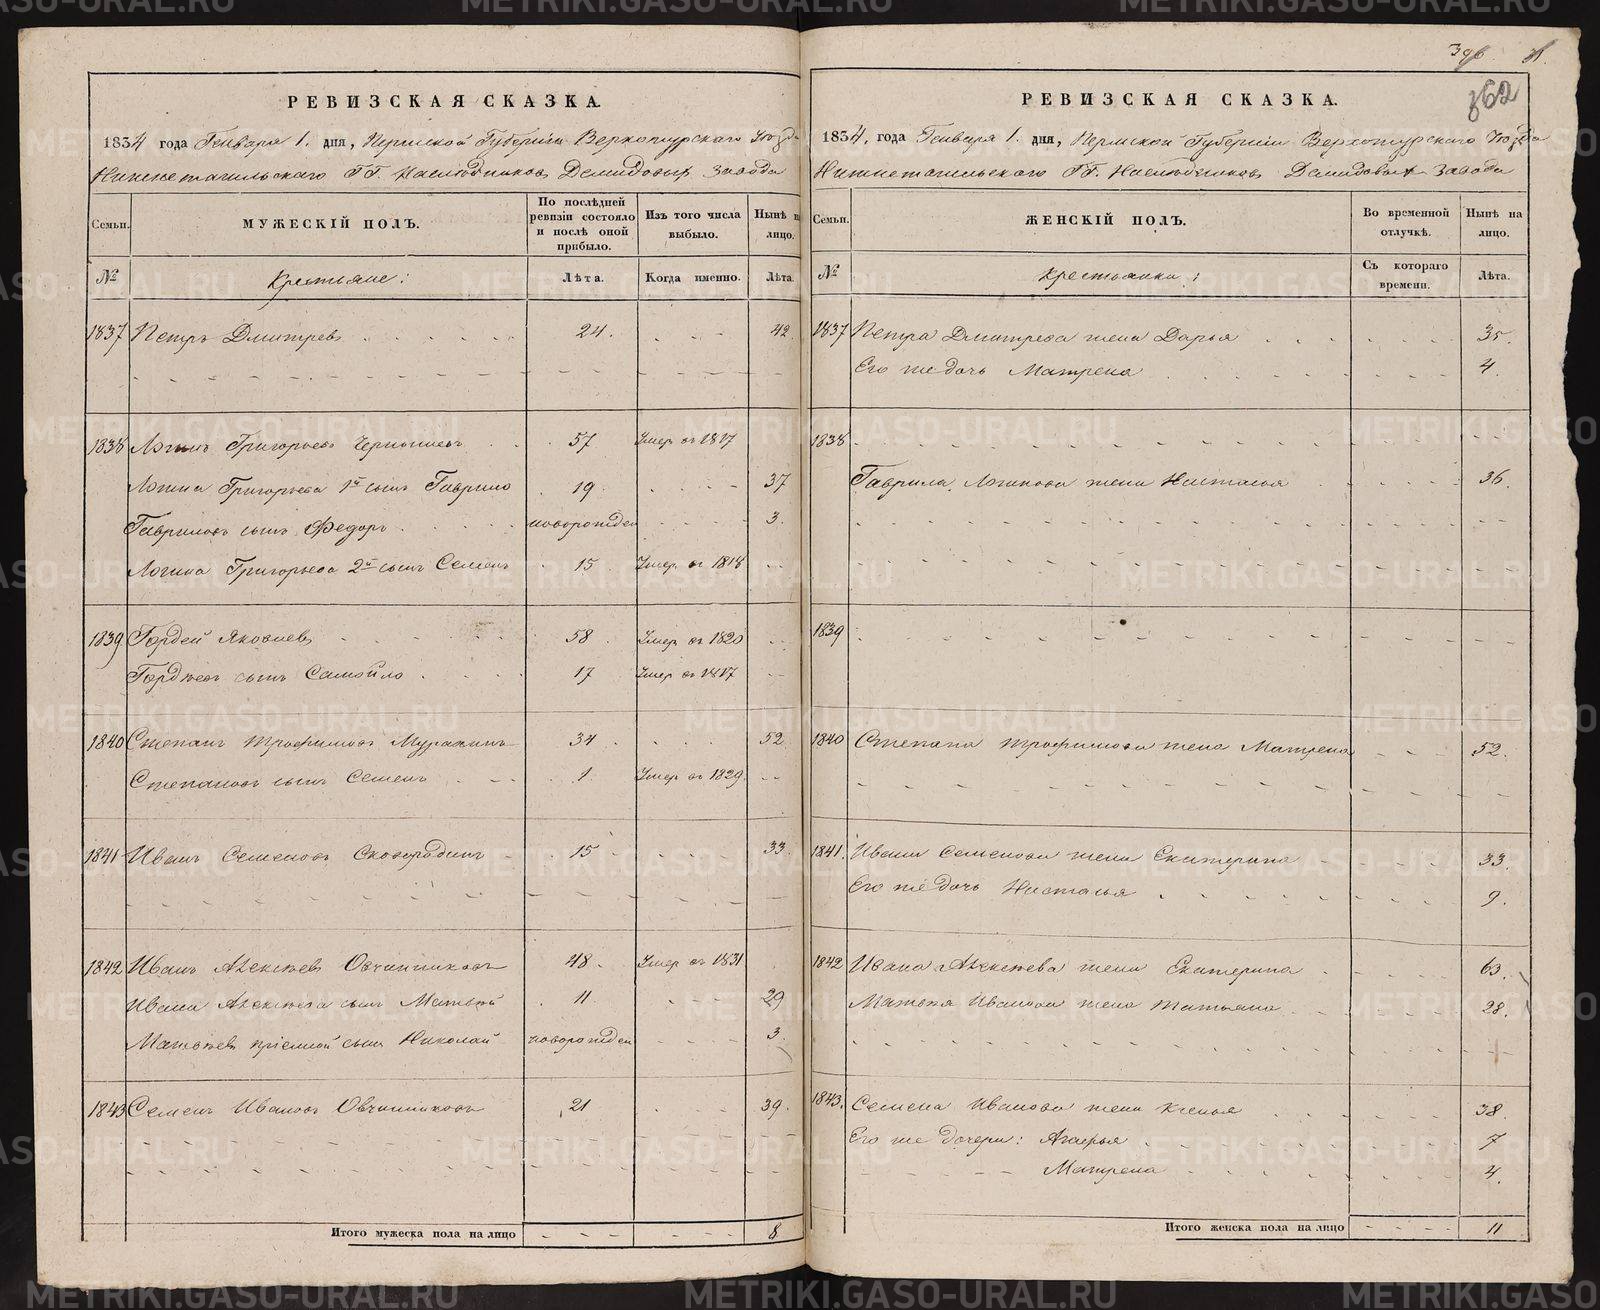 РЕВИЗСКАЯ СКАЗКА.
1834 года Генваря 1. дня, Пермской Губернии Верхотурскаго Уезда
Нижнетагильскаго ГГ. Наследников Демидовых завода
Семьи. МУЖЕСКІЙ ПОЛЪ. По послѣдней ревизіи состояло и послѣ оной прибыло. Изъ того числа выбыло. Нынѣ на лицо.
№ Крестьяне: Лѣта. Когда именно. Лѣта.
1837 Петръ Дмитревъ 24. 42
1838 Логинъ Григорьевъ 57 Умер въ 1817
Логина Григорьева 1й сынъ Гаврило 19 37
Гавриловъ сынъ Федоръ новорожден 3.
Логина Григорьева 2й сынъ Семенъ 15 Умер в 1818
1839 Гордей Яковлевъ 58 Умер въ 1820
Гордѣевъ сынъ Самойло 17 Умер въ 1817
1840 Степанъ Трофимовъ 34 52
Степановъ сынъ Семенъ 1 Умер въ 1829
1841 Иванъ Семеновъ Сковородинъ 15 33
1842 Иванъ Алексѣевъ Овчинниковъ 48. Умер въ 1831
Ивана Алексѣева сынъ Матвей 11 29
Матвѣевъ пріемной сынъ Николай новорожден 3.
1843 Семенъ Ивановъ Овчинниковъ 21 39.
Итого мужеска пола на лицо 8
398
862
РЕВИЗСКАЯ СКАЗКА.
1834, года Генваря 1. дня, Пермской Губерніи Верхотурскаго Уезда
Нижнетагильскаго ГГ. Наследников Демидовых завода
Семьи. ЖЕНСКІЙ ПОЛЪ. Во временной отлучкѣ. Нынѣ на лицо.
№ Крестьянки: Съ котораго времени. Лѣта.
1837 Петра Дмитрева жена Дарья 35.
Его же дочь Матрена 4.
1838
Гаврила Логинова жена Настасья 36.
1839
1840 Степана Трофимова жена Матрена 52.
1841. Ивана Семенова жена Екатерина 33
Его же дочь Настасья 9.
1842 Ивана Алексѣева жена Екатерина 63.
Матвѣя Иванова жена Татьяна 28.
1843. Семена Иванова жена Ксенья 38
Его же дочери: 7
Матрена 4.
Итого женска пола на лицо 11
METRIKI.GASO-URAL.RU